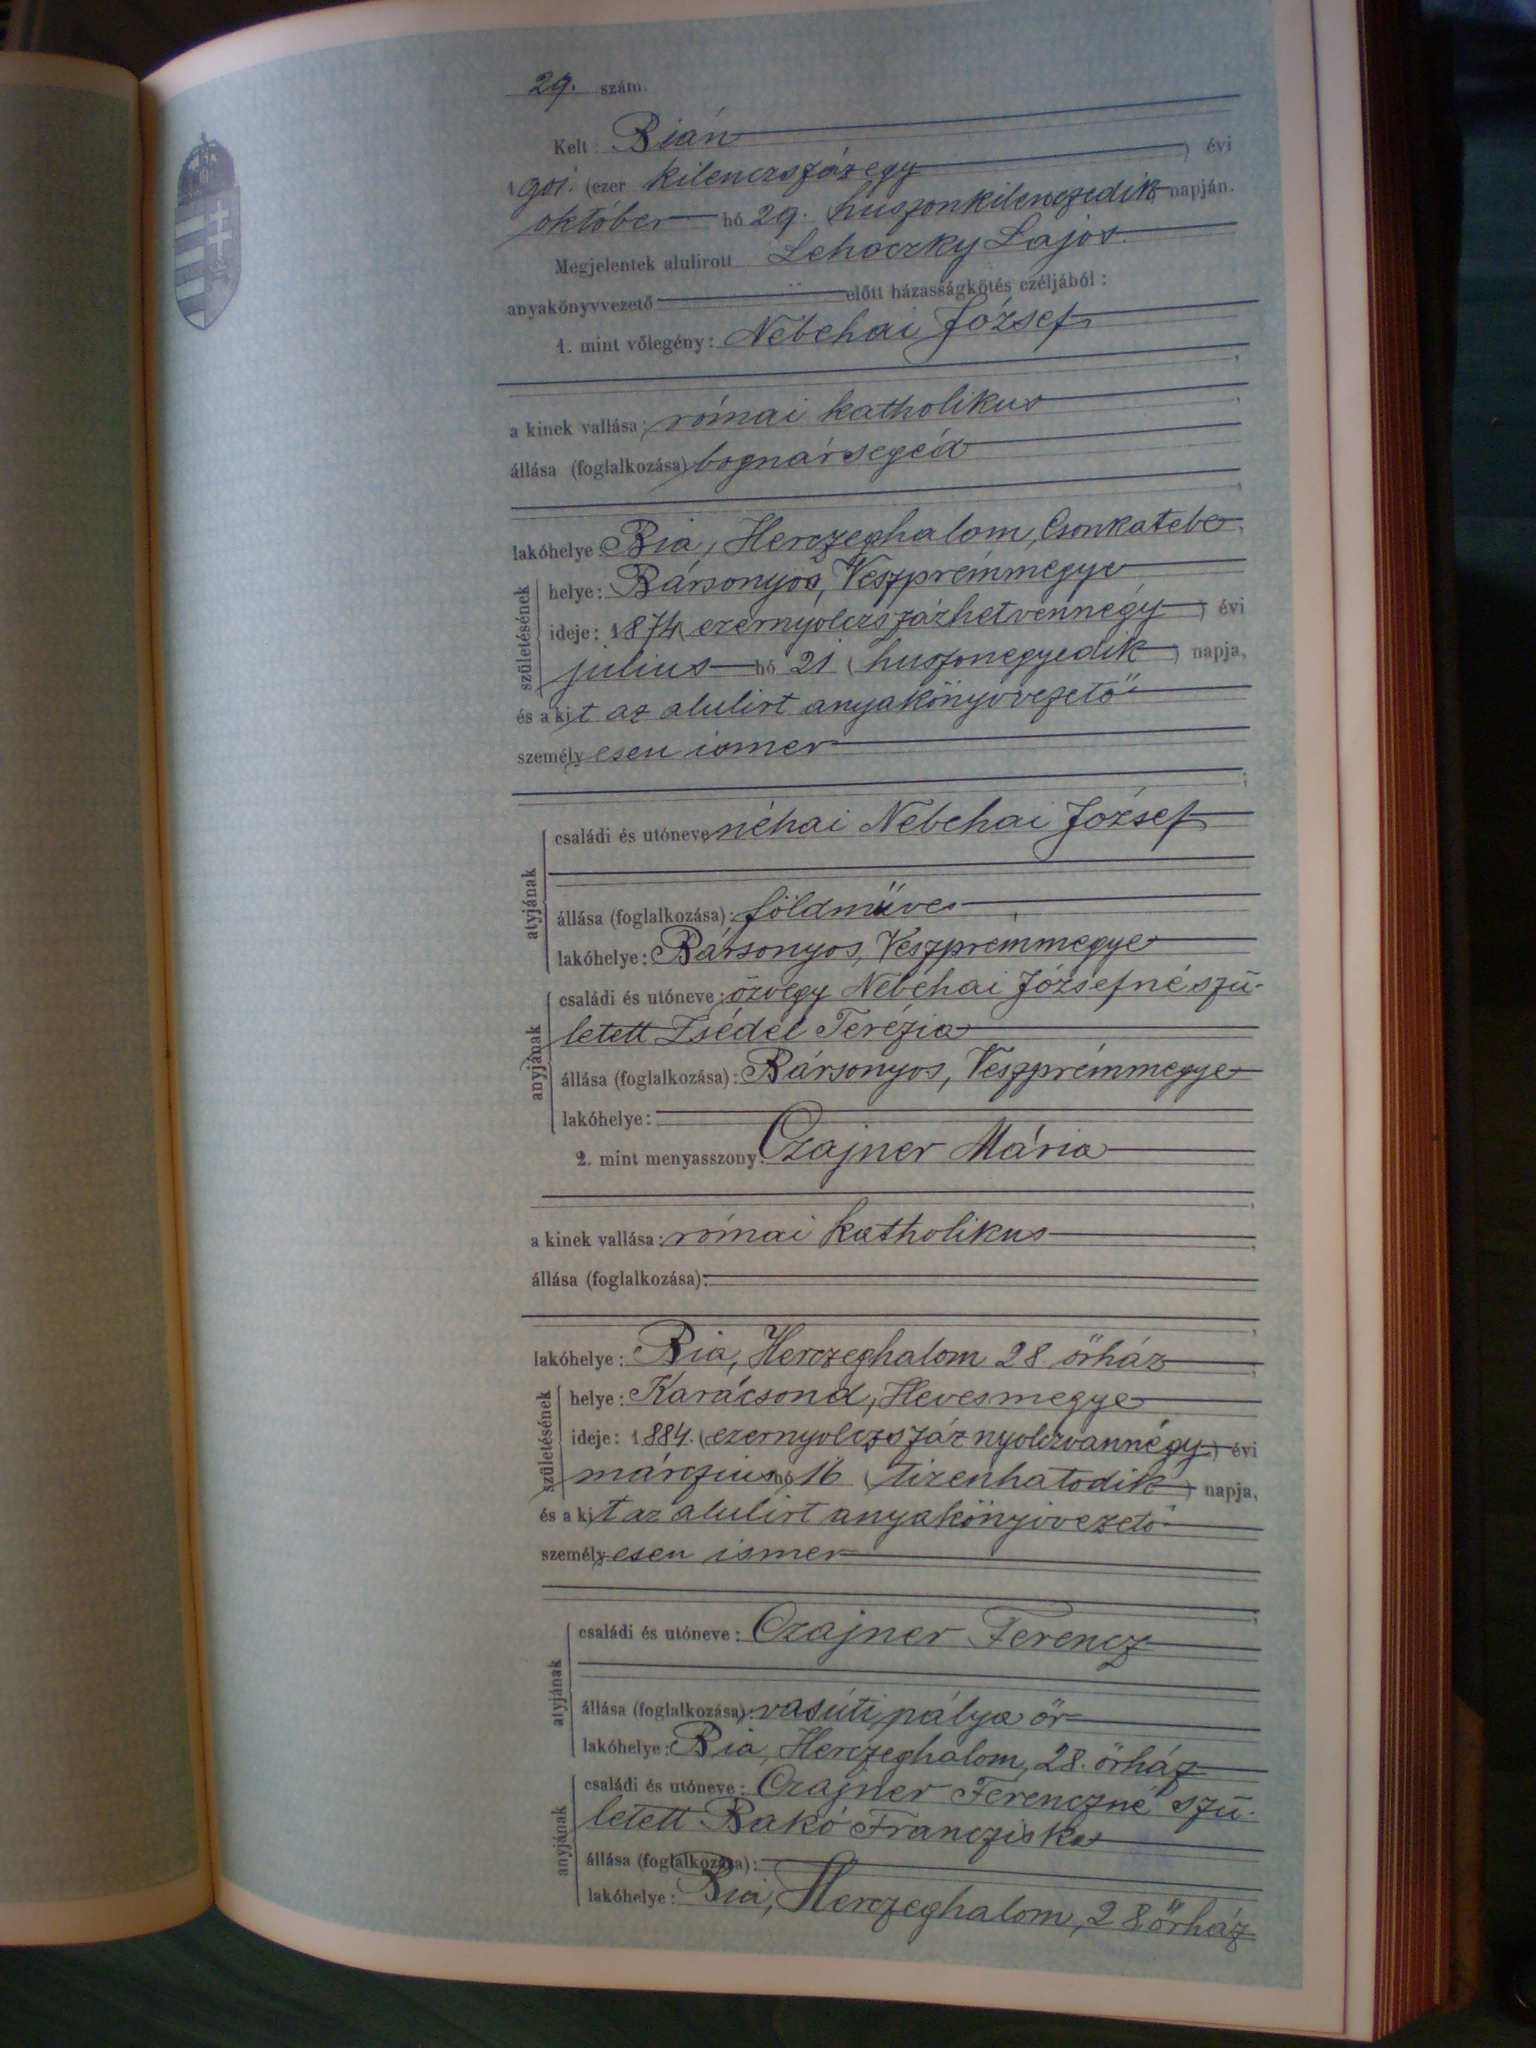 29. szám.
Kelt: Bián
1901. (ezer kilenczszázegy) évi
október hó 29. (huszonkilenczedik) napján.
Megjelentek alulirott Lehoczky Lajos
anyakönyvvezető előtt házasságkötés czéljából:
1. mint vőlegény: Nebehai József
a kinek vallása: római katholikus
állása (foglalkozása): bognársegéd
lakóhelye: Bia, Herczeghalom, Csonkatebe
születésének
helye: Bársonyos, Veszprémmegye
ideje: 1874 (ezernyolczszázhetvennégy) évi
julius hó 21 (huszonegyedik) napja,
és a kit az alulirt anyakönyvvezető
személyesen ismer
atyjának
családi és utóneve néhai Nebehai József
állása (foglalkozása): földmüves
lakóhelye: Bársonyos, Veszprémmegye
anyjának
családi és utóneve: özvegy Nebehai Józsefné szü-
letett Zsédel Terézia
állása (foglalkozása): Bársonyos, Veszprémmegye
lakóhelye:
2. mint menyasszony: Czajner Mária
a kinek vallása: római katholikus
állása (foglalkozása):
lakóhelye: Bia, Herczeghalom 28. őrház
születésének
helye: Karácsond, Hevesmegye
ideje: 1884. (ezernyolczszáznyolczvannégy) évi
márczius hó 16 (tizenhatodik) napja,
és a kit az alulirt anyakönyvvezető
személyesen ismer
atyjának
családi és utóneve: Czajner Ferencz
állása (foglalkozása): vasúti pálya őr
lakóhelye: Bia, Herczeghalom, 28. őrház
anyjának
családi és utóneve: Czajner Ferenczné szü-
letett Bakó Francziska
állása (foglalkozása):
lakóhelye: Bia, Herczeghalom, 28 őrház